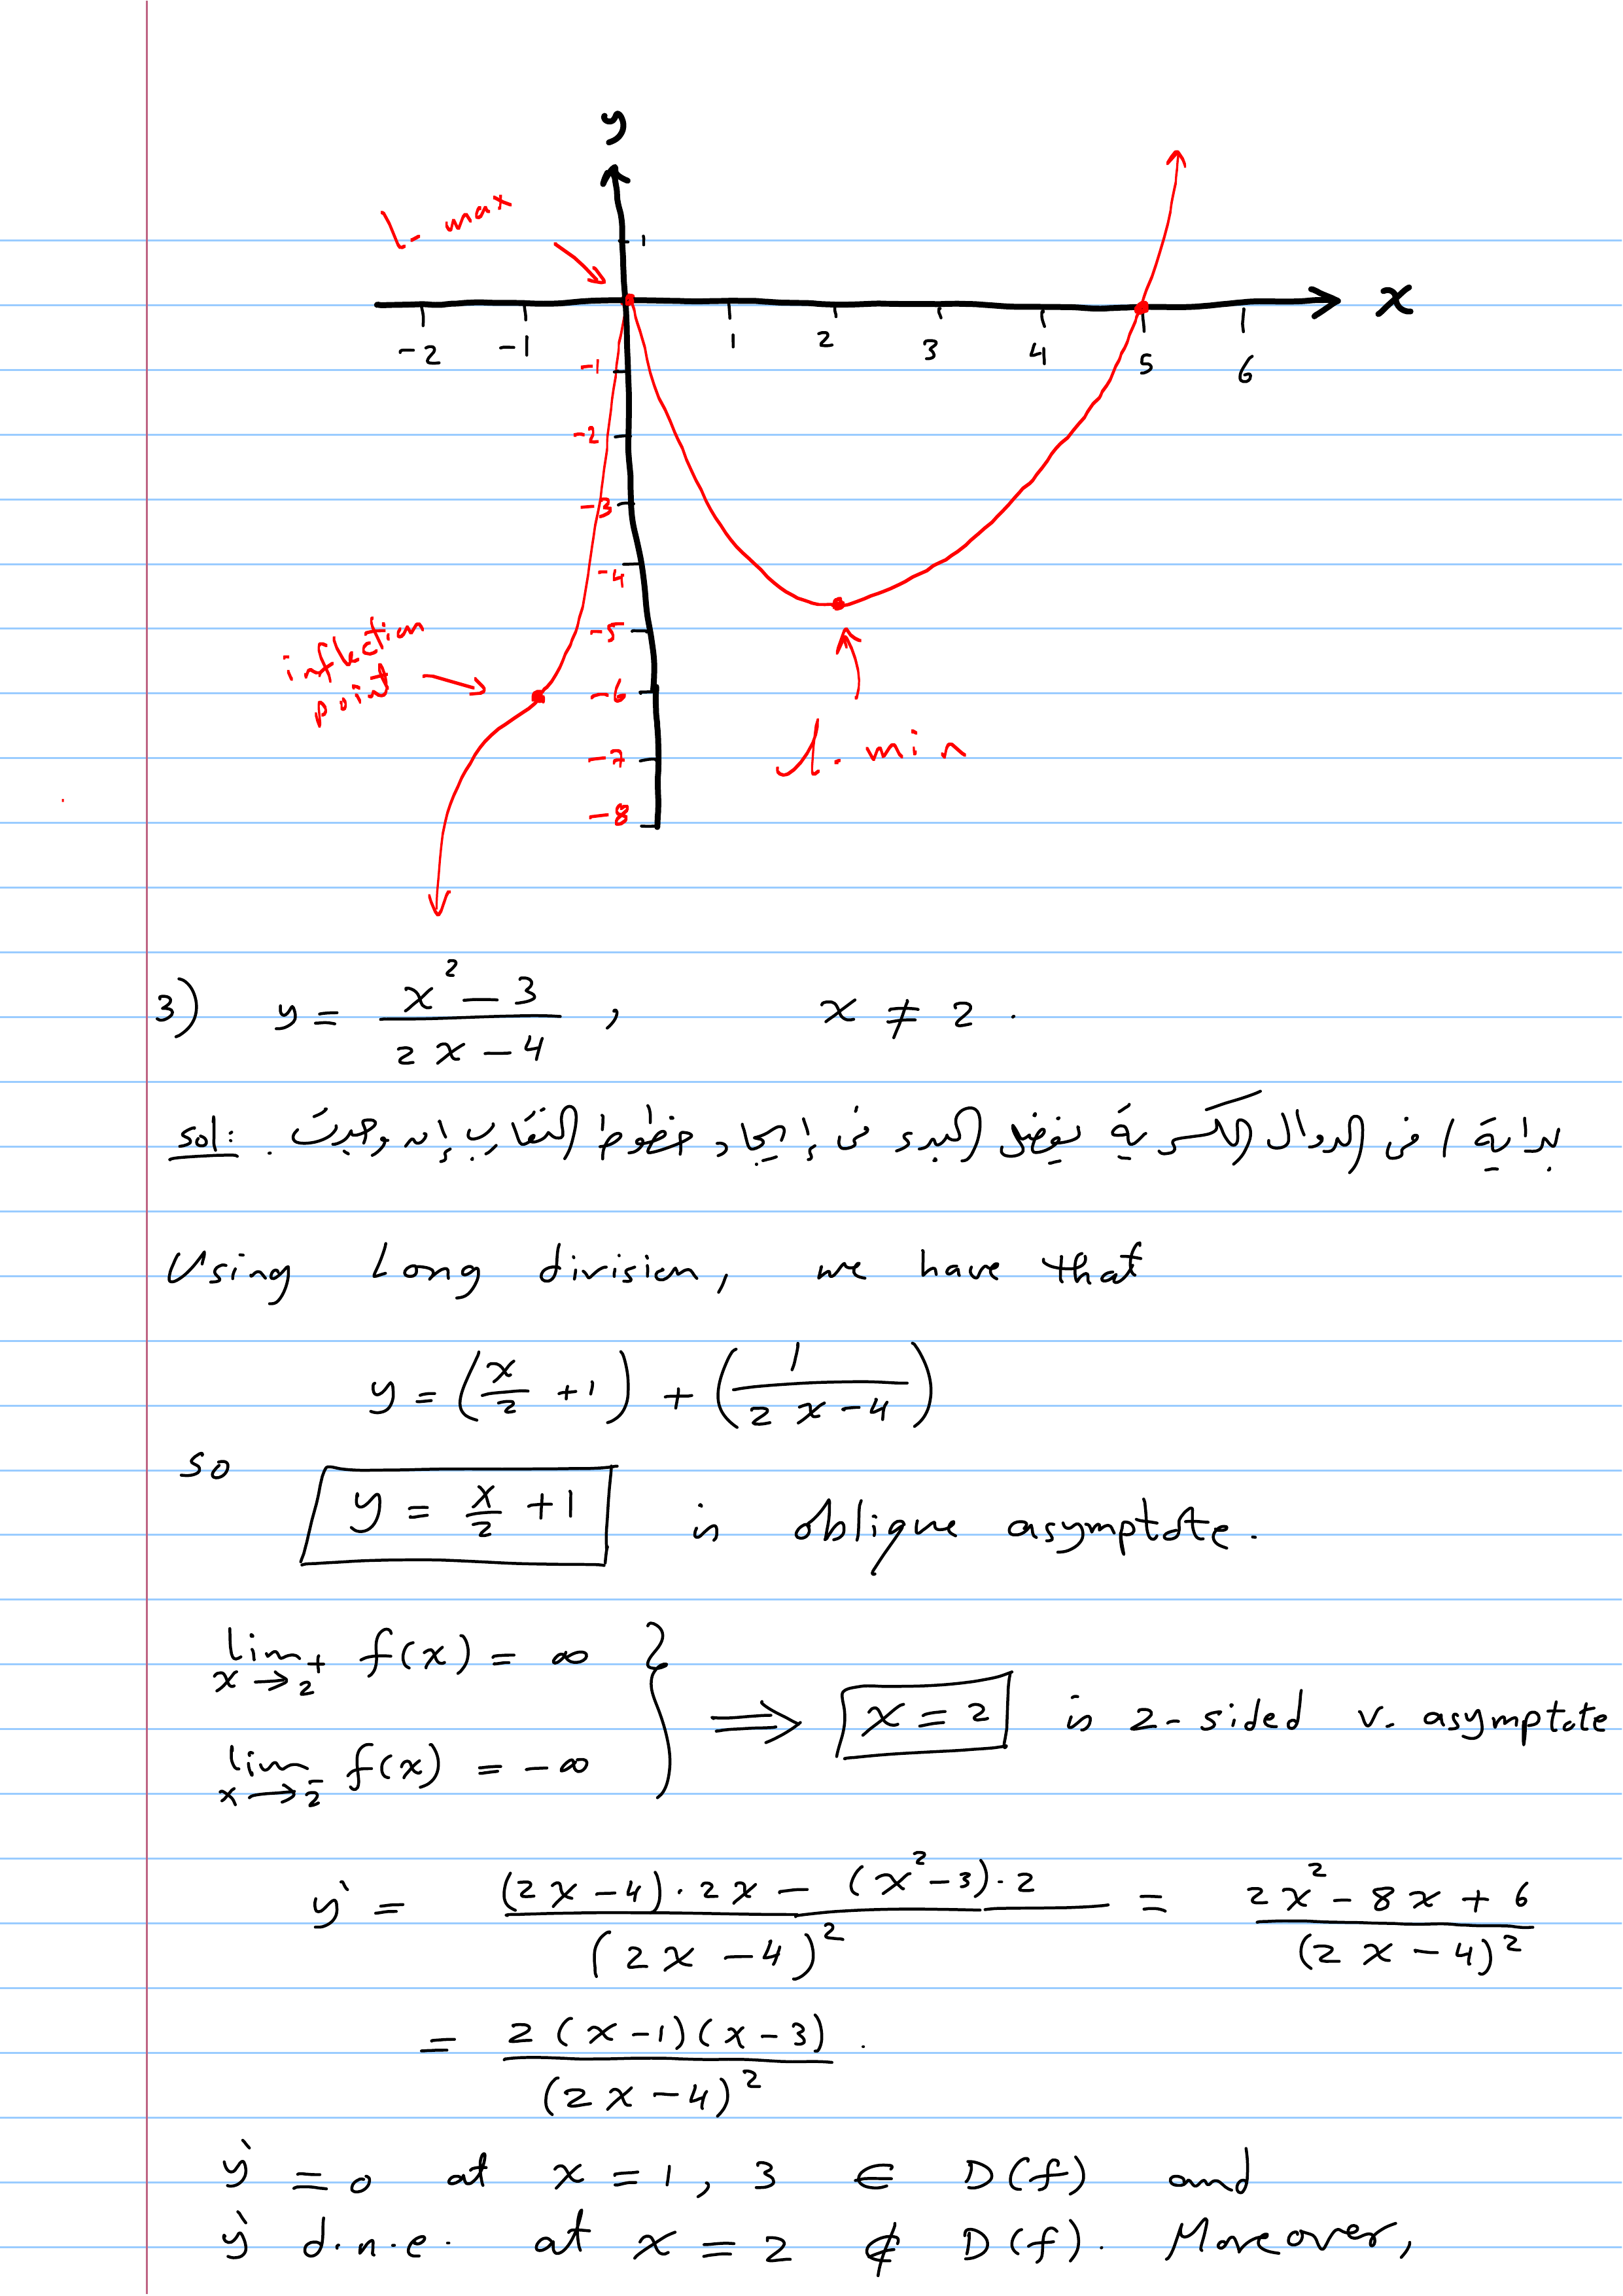 y
l. max
1
x
-2 -1 1 2 3 4 5 6
-1
-2
-3
-4
-5
inflection
point
-6
l. min
-7
-8
3) y = (x² - 3)/(2x - 4) , x ≠ 2 .
sol: بداية / في الدوال الكسرية يفضل البدء في إيجاد خطوط التقارب إن وجدت .
Using Long division, we have that
y = (x/2 + 1) + (1/(2x - 4))
so y = x/2 + 1 is oblique asymptote.
lim x→2⁺ f(x) = ∞
lim x→2⁻ f(x) = -∞ } ⟹ x = 2 is 2-sided v. asymptote
y` = ((2x - 4) · 2x - (x² - 3) · 2)/(2x - 4)² = (2x² - 8x + 6)/(2x - 4)²
= 2(x - 1)(x - 3)/(2x - 4)² .
y` = 0 at x = 1, 3 ∈ D(f) and
y` d.n.e. at x = 2 ∉ D(f). Moreover,